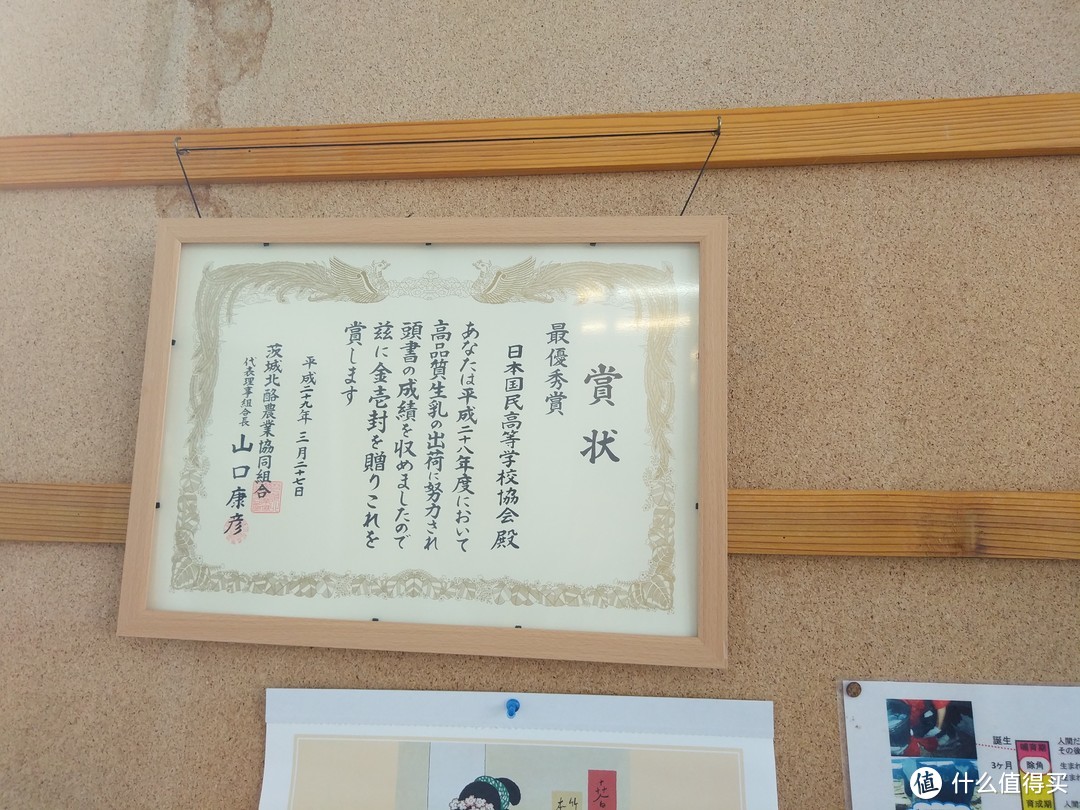 賞状
最優秀賞
日本国民高等学校協会殿
あなたは平成二十八年度において
高品質生乳の出荷に努力され
頭書の成績を収めましたので
茲に金壱封を贈りこれを
賞します
平成二十九年三月二十七日
茨城北酪農業協同組合
代表理事組合長 山口康彦
誕生
3ヶ月
哺育期
除角
育成期
人間だ
その後
生まれ
人間
值 什么值得买